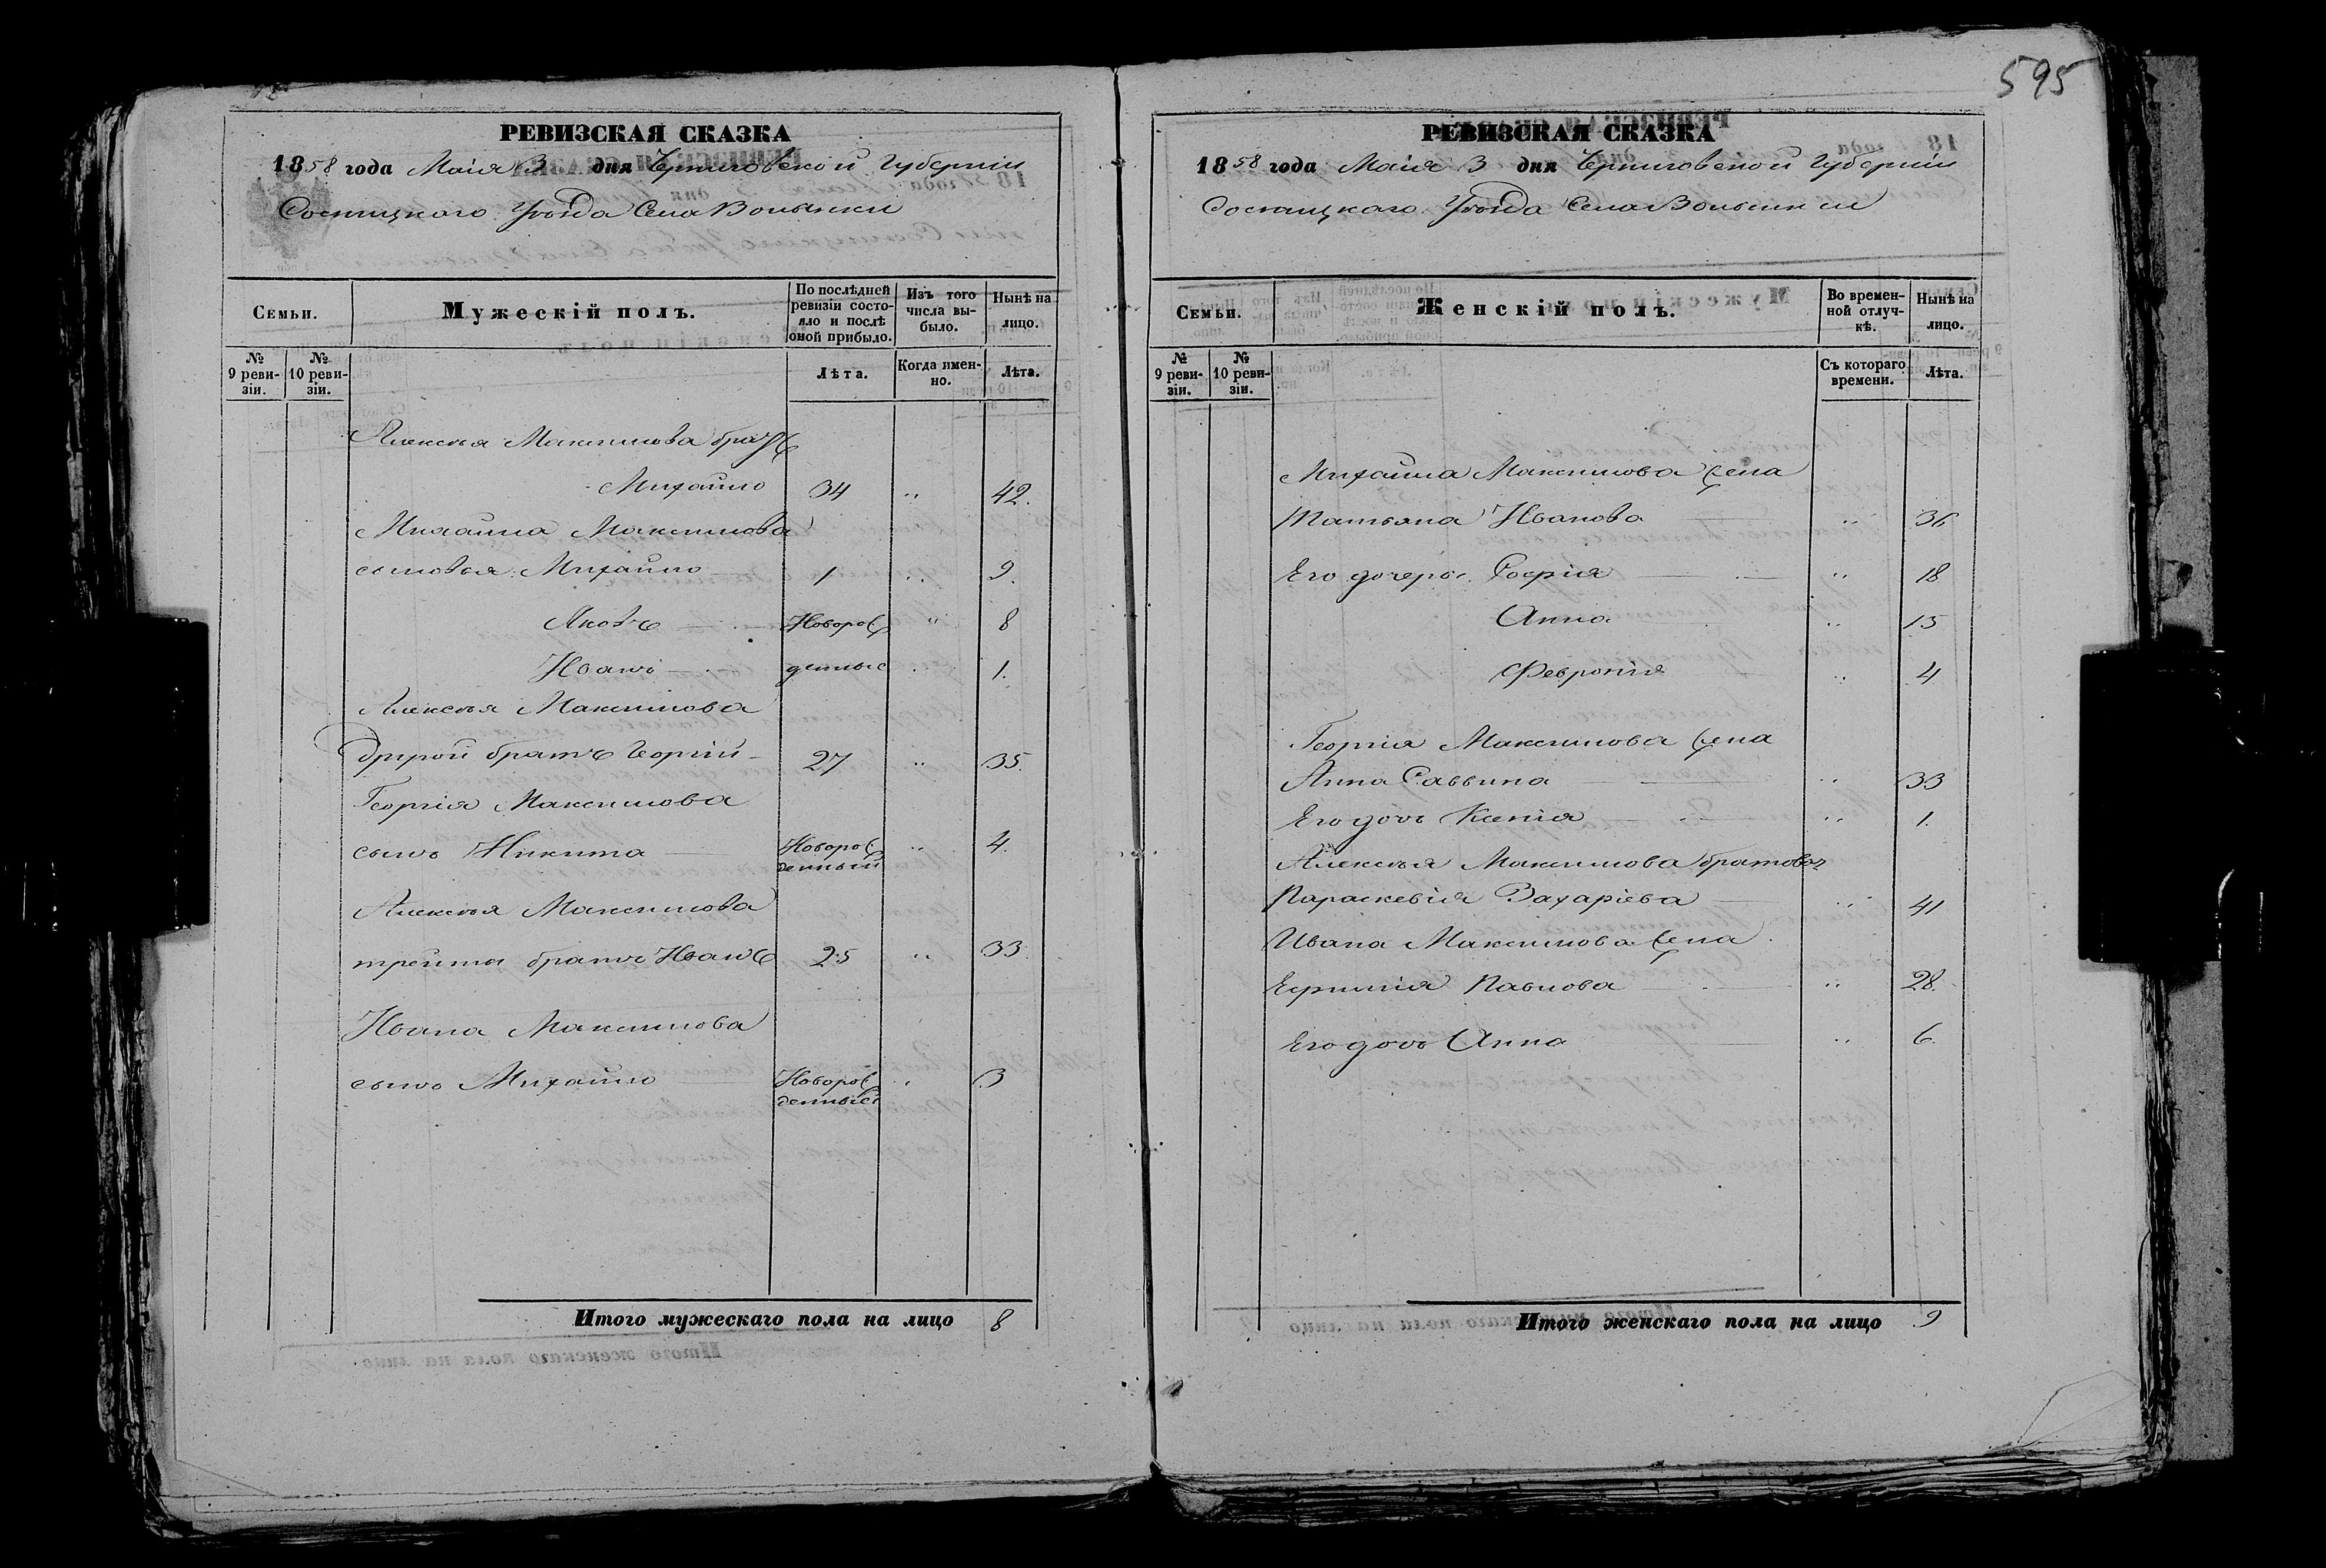 595
РЕВИЗСКАЯ СКАЗКА
1858 года Маія 3 дня Черниговской Губерніи
Сосницкаго Уѣзда Села Волынки
Семьи.
Мужескій полъ.
По послѣдней ревизіи состояло и послѣ оной прибыло.
Изъ того числа выбыло.
Нынѣ на лицо.
№ 9 ревизіи.
№ 10 ревизіи.
Лѣта.
Когда именно.
Лѣта.
Алексѣя Максимова братъ
Михайло 34 " 42.
Михаила Максимова
сыновья: Михайло 1 " 9.
Яковъ Новорож " 8
Иванъ денные " 1.
Алексѣя Максимова
другой братъ Георгій 27 " 35.
Георгія Максимова
сынъ Никита Новорож денный " 4.
Алексѣя Максимова
третій братъ Иванъ 25 " 33.
Ивана Максимова
сынъ Михайло Новорож денный " 3
Итого мужескаго пола на лицо 8
РЕВИЗСКАЯ СКАЗКА
1858 года Маія 3 дня Черниговской Губерніи
Сосницкаго Уѣзда Села Волынки
Семьи.
Женскій полъ.
Во временной отлучкѣ.
Нынѣ на лицо.
№ 9 ревизіи.
№ 10 ревизіи.
Съ котораго времени.
Лѣта.
Михайла Максимова жена
Татьяна Иванова " 36
Его дочеры: Софія " 18
Анна " 15
Февронія " 4
Георгія Максимова жена
Анна Саввина " 33
Его дочь Ксенія " 1.
Алексѣя Максимова братова
Параскевія Захаріева " 41
Ивана Максимова жена
Ефимія Павлова " 28.
Его дочь Анна " 6.
Итого женскаго пола на лицо 9